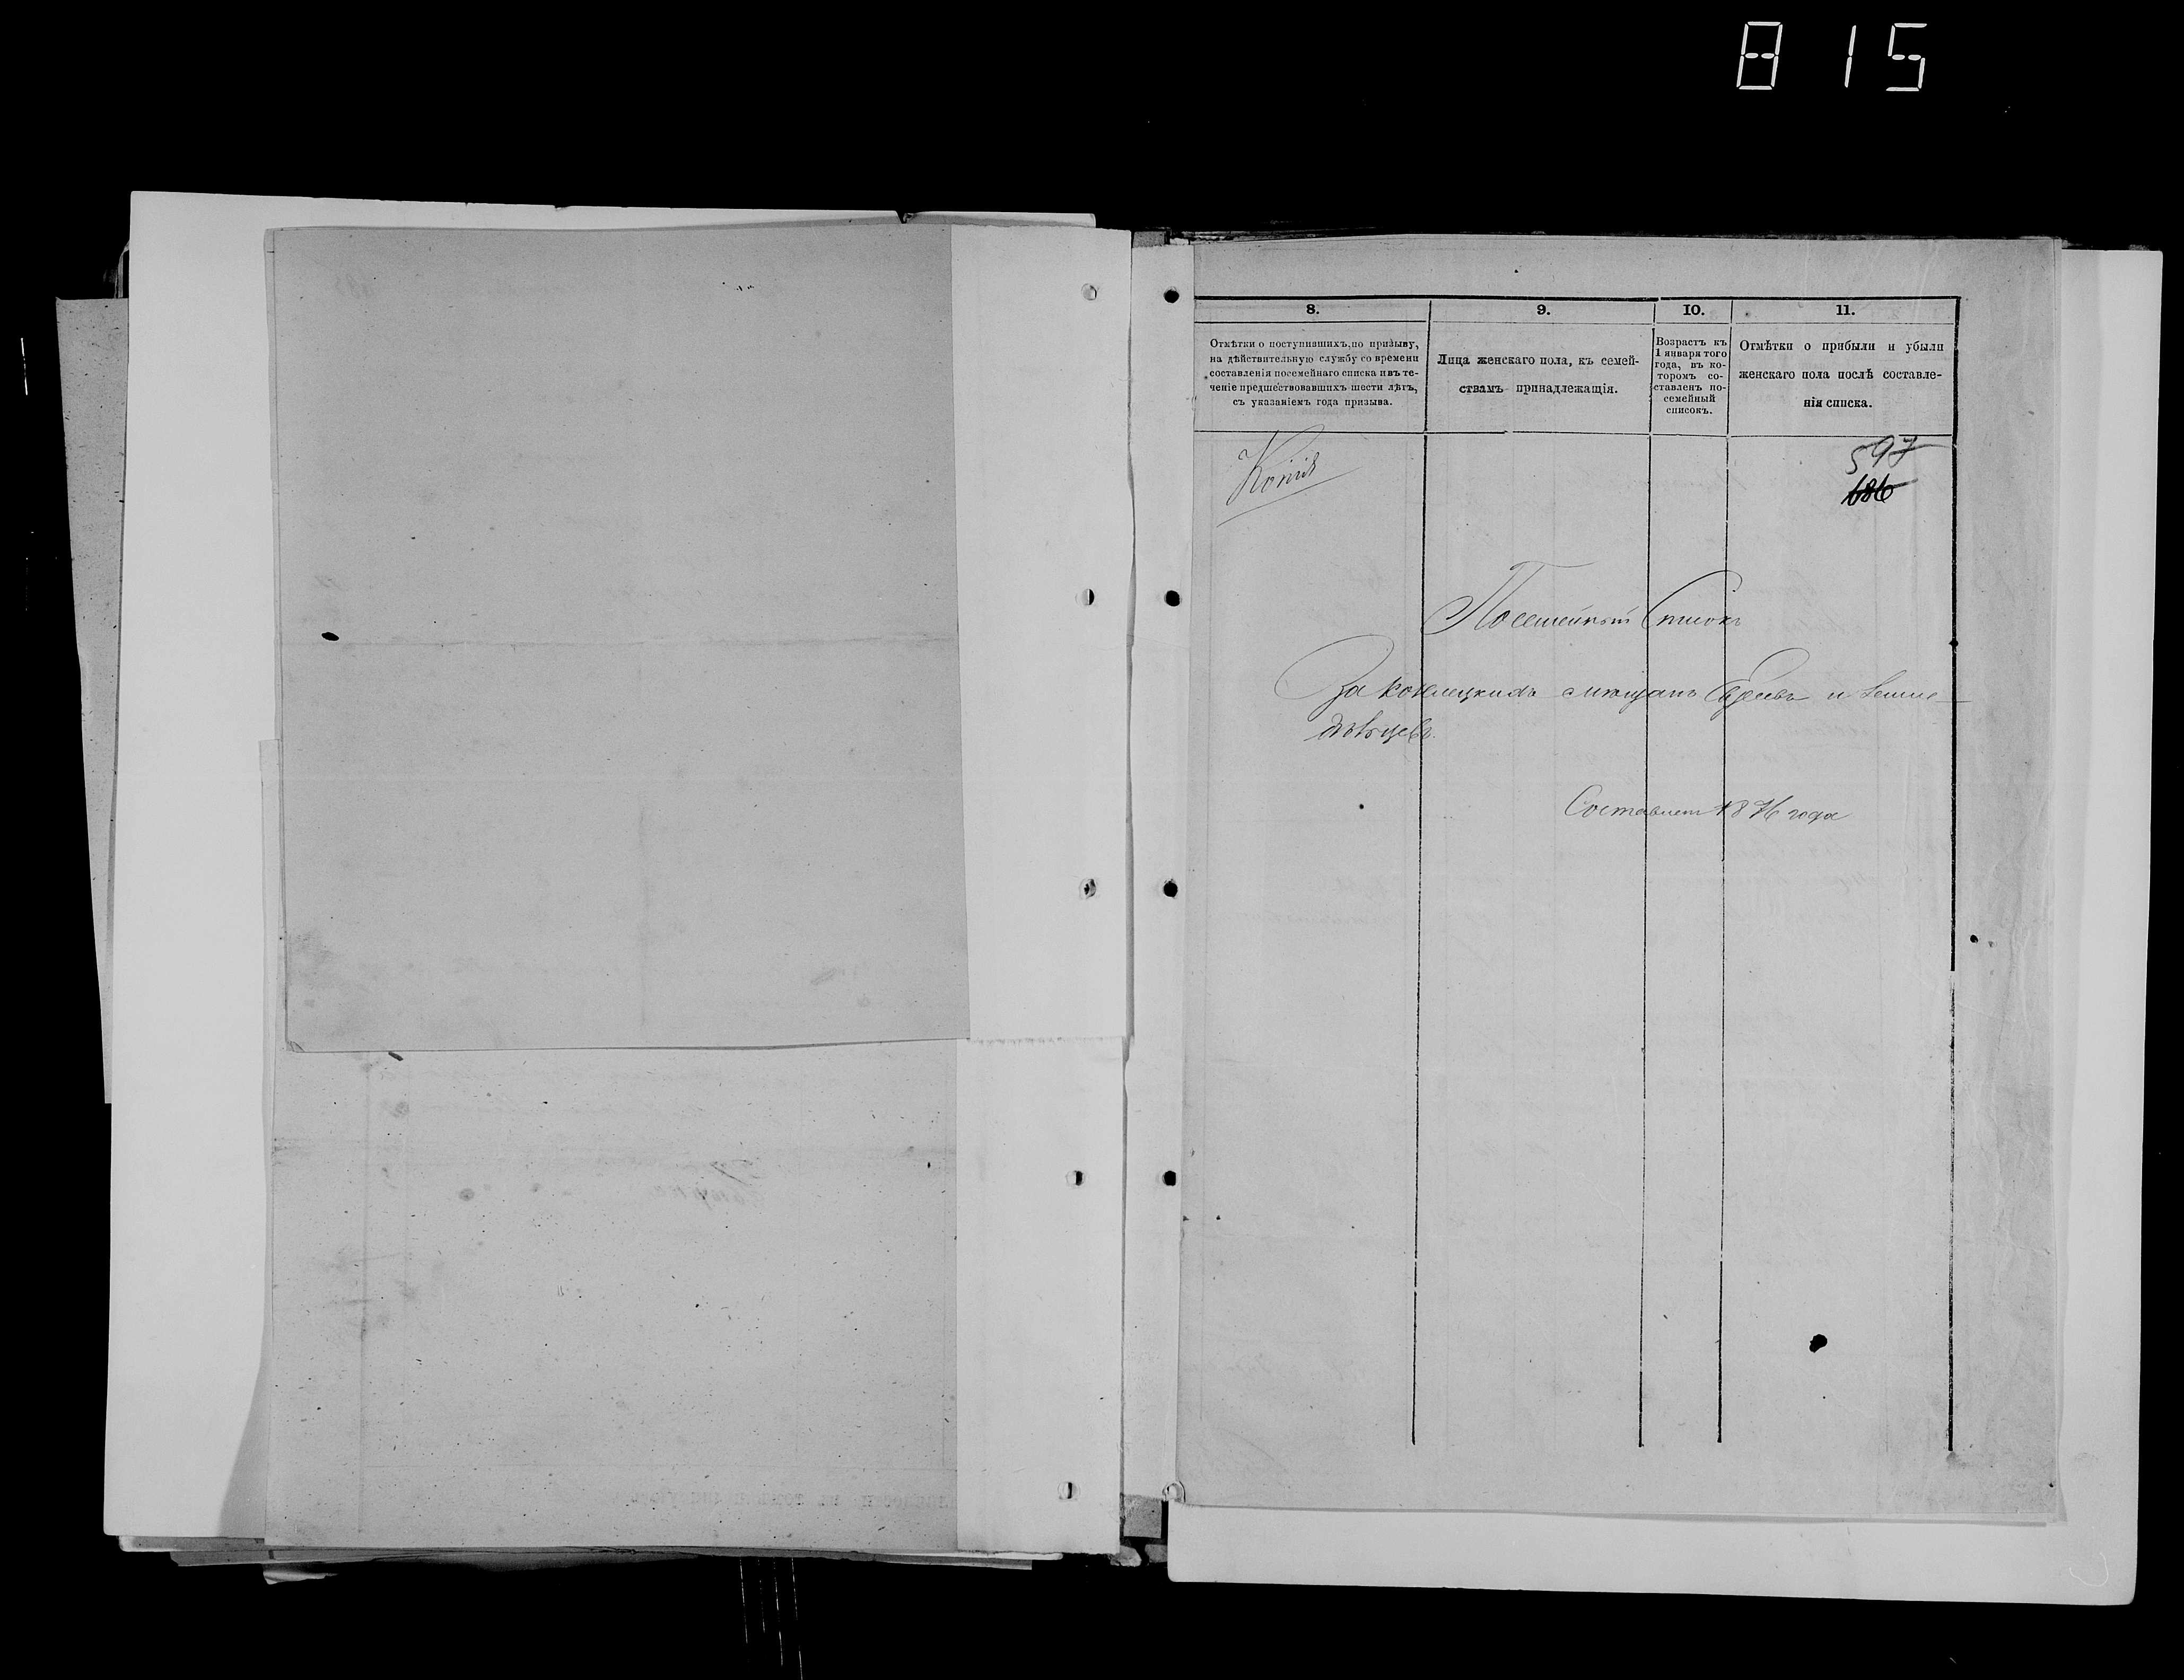 815
8.
9.
10.
11.
Отмѣтки о поступившихъ, по призыву,
на дѣйствительную службу со времени
составленія посемейнаго списка и въ те-
ченіе предшествовавшихъ шести лѣтъ,
съ указаніемъ года призыва.
Лица женскаго пола, къ семей-
ствамъ принадлежащія.
Возрастъ къ
1 января того
года, въ ко-
торомъ со-
ставленъ по-
семейный
списокъ.
Отмѣтки о прибыли и убыли
женскаго пола послѣ составле-
нія списка.
Копія
597
686
Посемейный Списокъ
За мѣщанъ Евреевъ и Земле-
дѣльцевъ.
Составленъ 1876 года